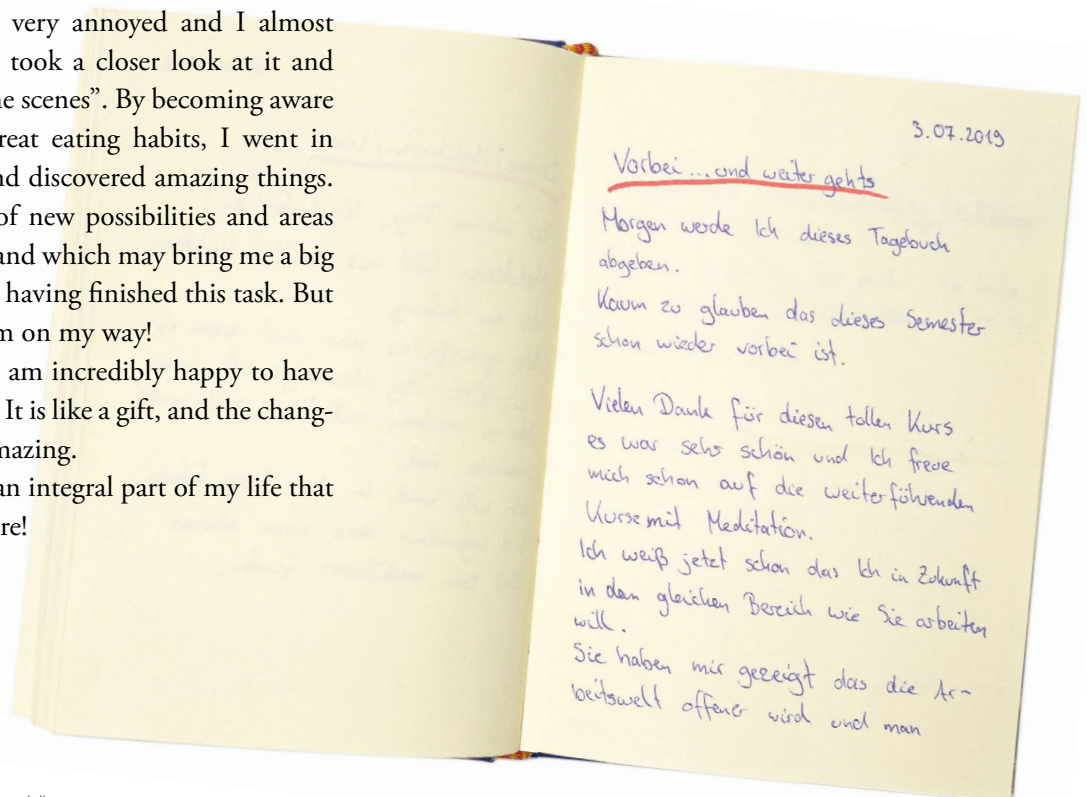 very annoyed and I almost
took a closer look at it and
ne scenes”. By becoming aware
reat eating habits, I went in
nd discovered amazing things.
of new possibilities and areas
and which may bring me a big
having finished this task. But
m on my way!
am incredibly happy to have
It is like a gift, and the chang-
mazing.
an integral part of my life that
re!
3.07.2019
Vorbei ... und weiter gehts
Morgen werde Ich dieses Tagebuch
abgeben.
Kaum zu glauben das dieses Semester
schon wieder vorbei ist.
Vielen Dank für diesen tollen Kurs
es war sehr schön und Ich freue
mich schon auf die weiterführenden
Kurse mit Meditation.
Ich weiß jetzt schon das Ich in Zukunft
in dem gleichen Bereich wie Sie arbeiten
will.
Sie haben mir gezeigt das die Ar-
beitswelt offener wird und man